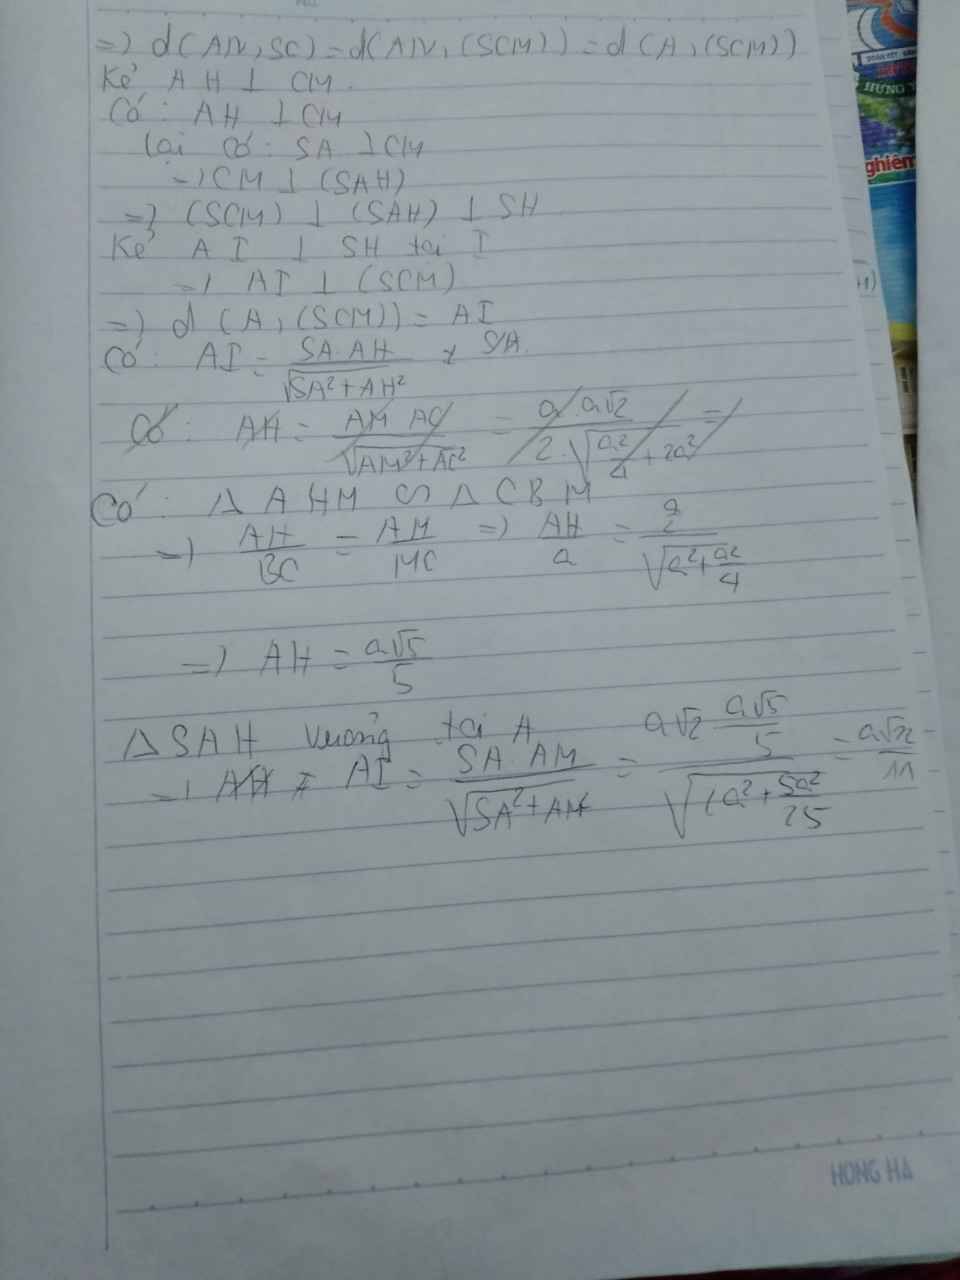 =) d(AN, SC) = d(AN, (SCM)) = d(A, (SCM))
Kẻ AH ⊥ CM.
Có: AH ⊥ CM
lại có: SA ⊥ CM
=) CM ⊥ (SAH)
=) (SCM) ⊥ (SAH) ⊥ SH
Kẻ AI ⊥ SH tại I
=) AI ⊥ (SCM)
=) d(A, (SCM)) = AI
Có: AI = SA.AH / √(SA² + AH²)
Có: AH = AM AC / √(AM² + AC²) = a.a√2 / 2.√(a²/4 + 2a²) =
Có: Δ AHM ∽ Δ CBM
=) AH/BC = AM/MC =) AH/a = a/2 / √(a² + a²/4)
=) AH = a√5/5
Δ SAH vuông tại A
=) AI = SA.AM / √(SA² + AH = a√2 a√5/5 / √(2a² + 5a²/25) = a√22/11
HONG HA
HƯNG
nghiêm